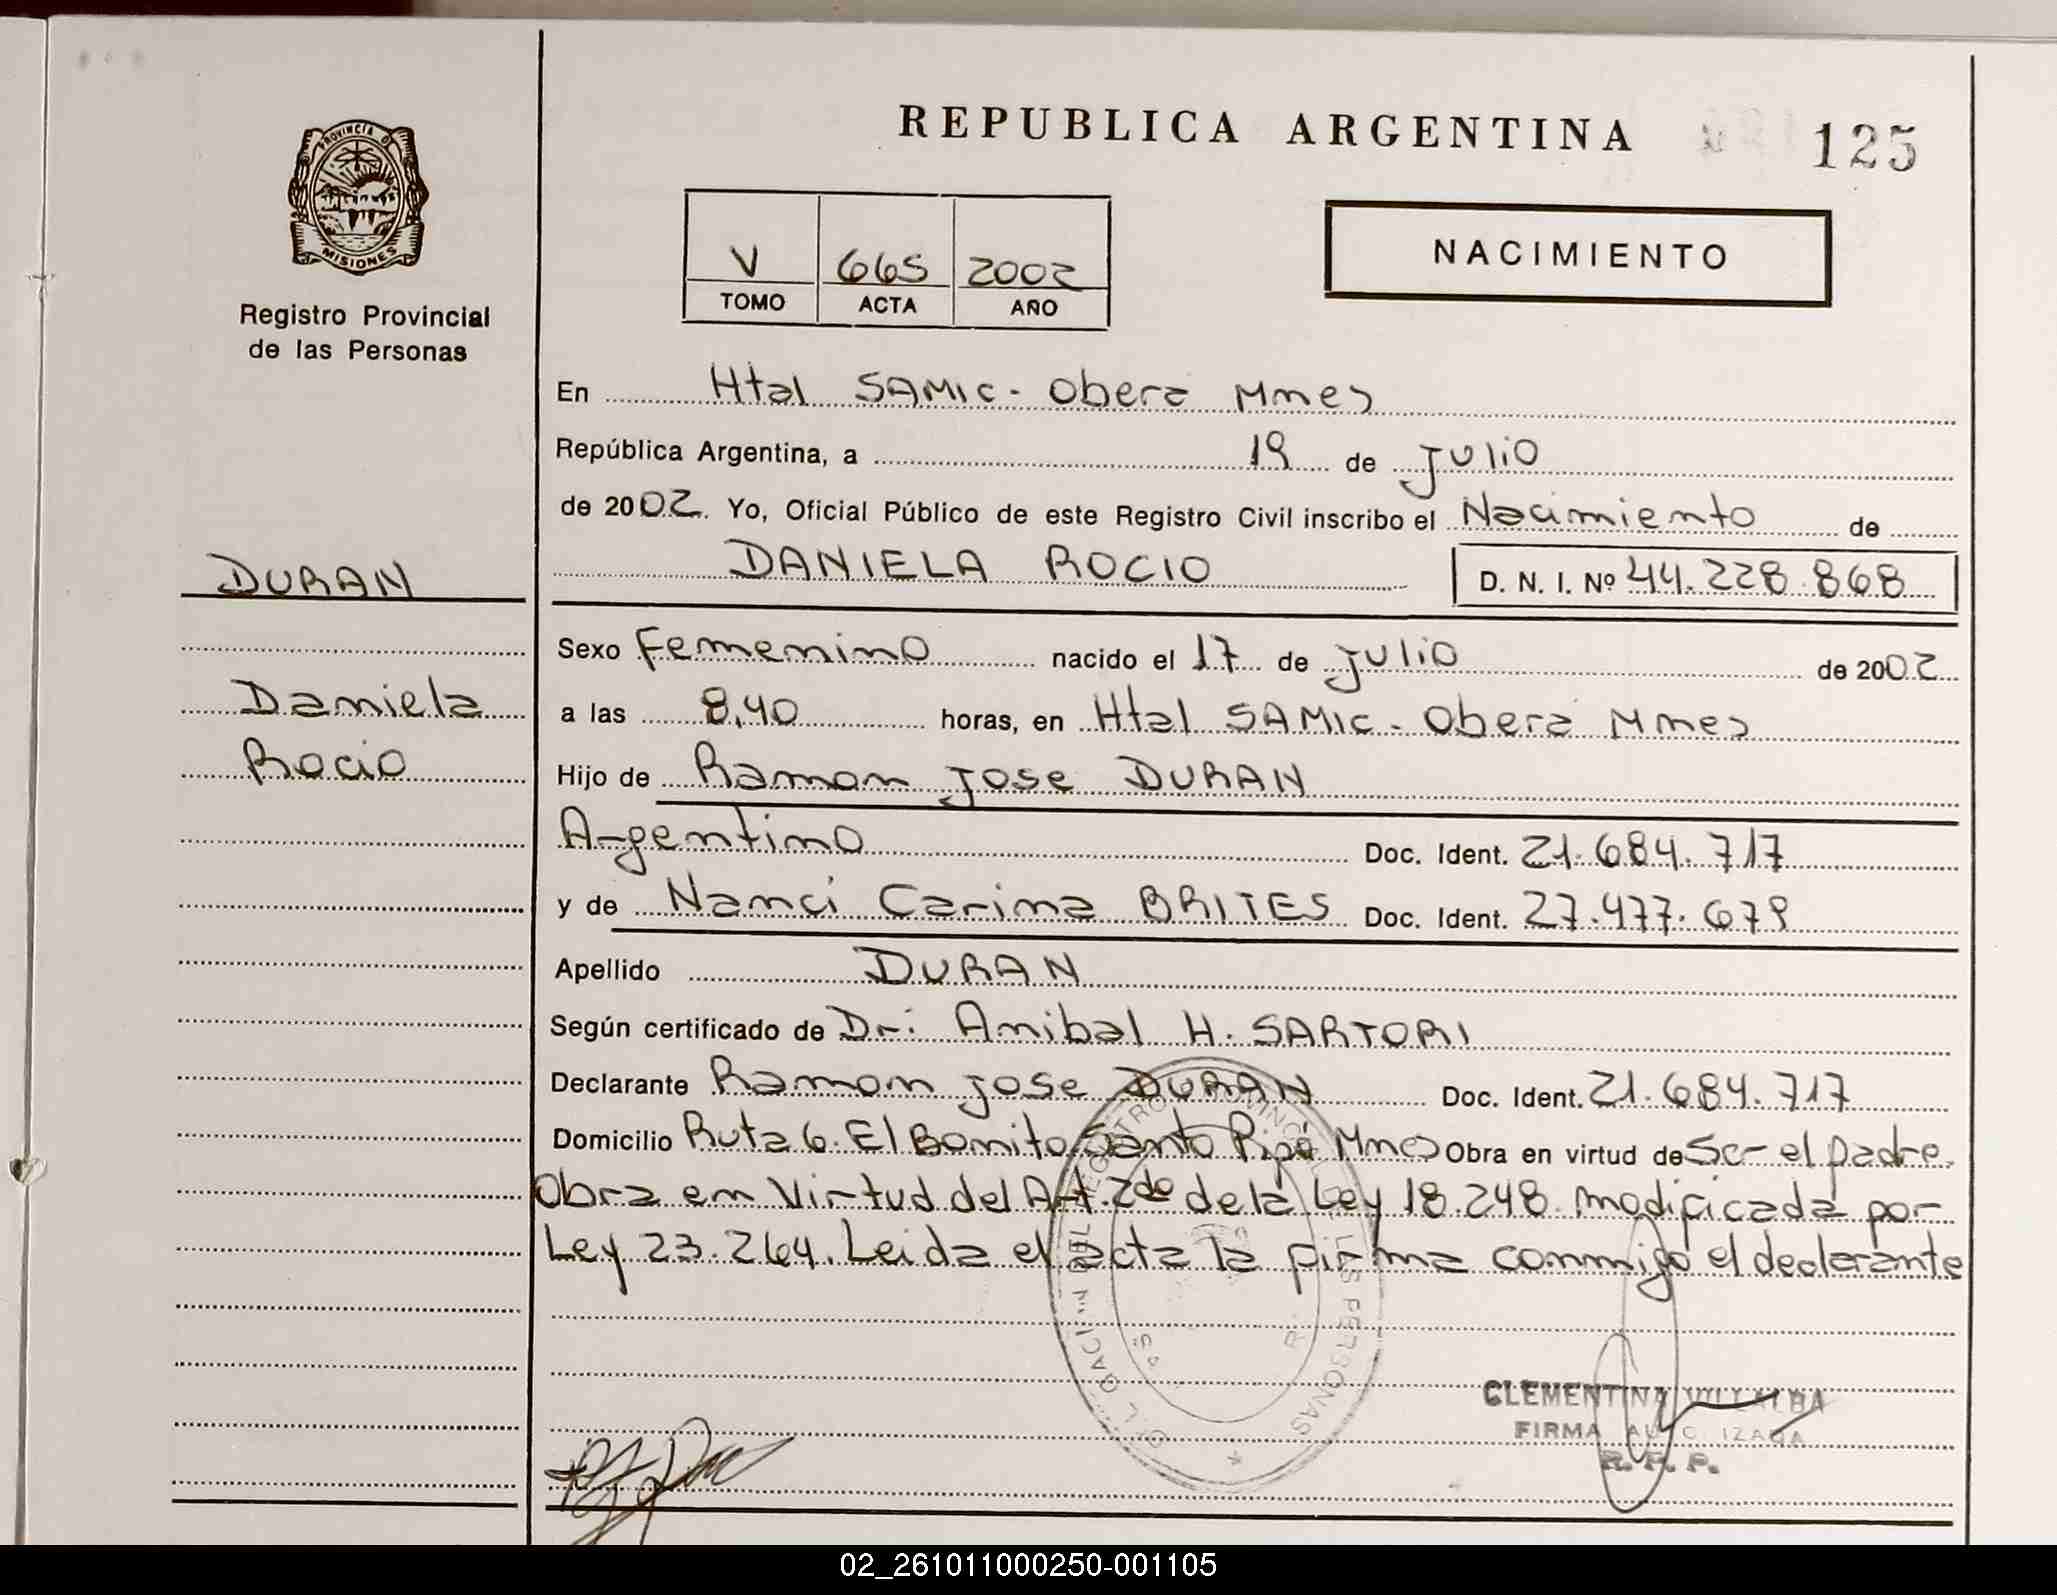 REPUBLICA ARGENTINA
125
PROVINCIA DE
MISIONES
Registro Provincial
de las Personas
V 665 2002
TOMO ACTA AÑO
NACIMIENTO
En Htal SAMIC - Obera Mnes
República Argentina, a 19 de Julio
de 2002. Yo, Oficial Público de este Registro Civil inscribo el Nacimiento de
DANIELA ROCIO D. N. I. Nº 44.228.868
DURAN
Daniela
Rocio
Sexo Femenino nacido el 17 de Julio de 2002
a las 8,40 horas, en Htal SAMIC - Obera Mnes
Hijo de Ramon Jose DURAN
Argentino Doc. Ident. 21.684.717
y de Nanci Carina BRITES Doc. Ident. 27.477.679
Apellido DURAN
Según certificado de Dr: Anibal H. SARTORI
Declarante Ramon Jose DURAN Doc. Ident. 21.684.717
Domicilio Ruta 6. El Bonito Santo Pipó Mnes Obra en virtud de Ser el padre.
Obra en Virtud del Art. 2do de la Ley 18.248 modificada por
Ley 23.264. Leida el acta la firma conmigo el declarante
CLEMENTINA VILLALBA
FIRMA
R. P. P.
02_261011000250-001105